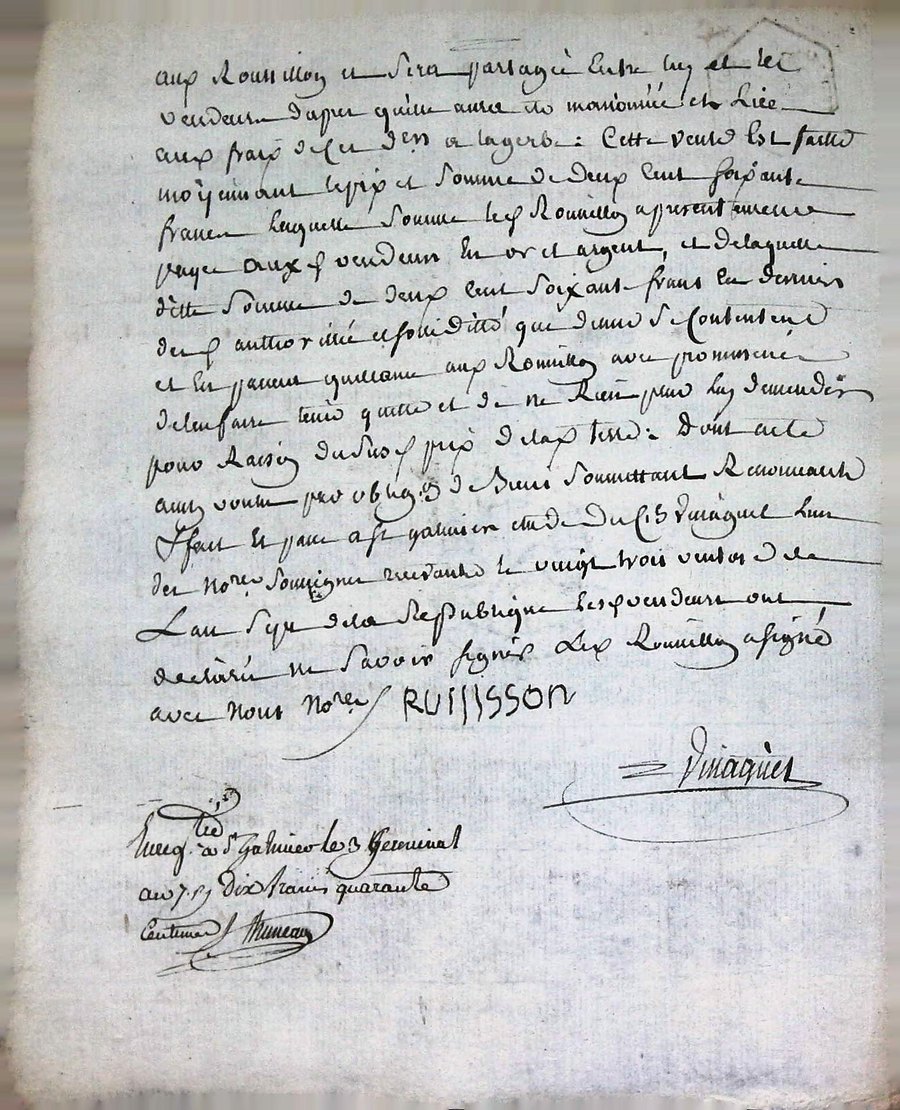 aux Roussillon et sera partagée Entre luy et les
vendeurs dapres quelle aura été moissonnée et Liée
aux fraix de et a la gerbe : Cette vente Est faitte
moyennant le prix et somme de deux cent soixante
francs laquelle somme le Roussillon a presentement
payee aux vendeurs En or et argent, et de laquelle
ditte somme de deux cent soixante francs les derniers
de authorisée et soliditté que dessus se Contentent
et En passent quittance aux Roussillon avec promesse
de len faire tenir quitte et de ne Rien plus luy demender
pour Raison du sus prix de la terre : Dont acte
ainsy voulu par oblig.on de Biens soumettant Renonceant
fait Et passé a St galmier etude du C.en Vinaquet Lun
des No.res soussignes recevant le vingt trois ventose de
Lan sept de la Republique les vendeurs ont
declaré ne savoir signer Le Roussillon a signé
avec Nous No.res RUIIISSON
Vinaquet
Enreg.tré a St Galmier le 3 Germinal
an 7. Rj dix francs quarante
Centimes